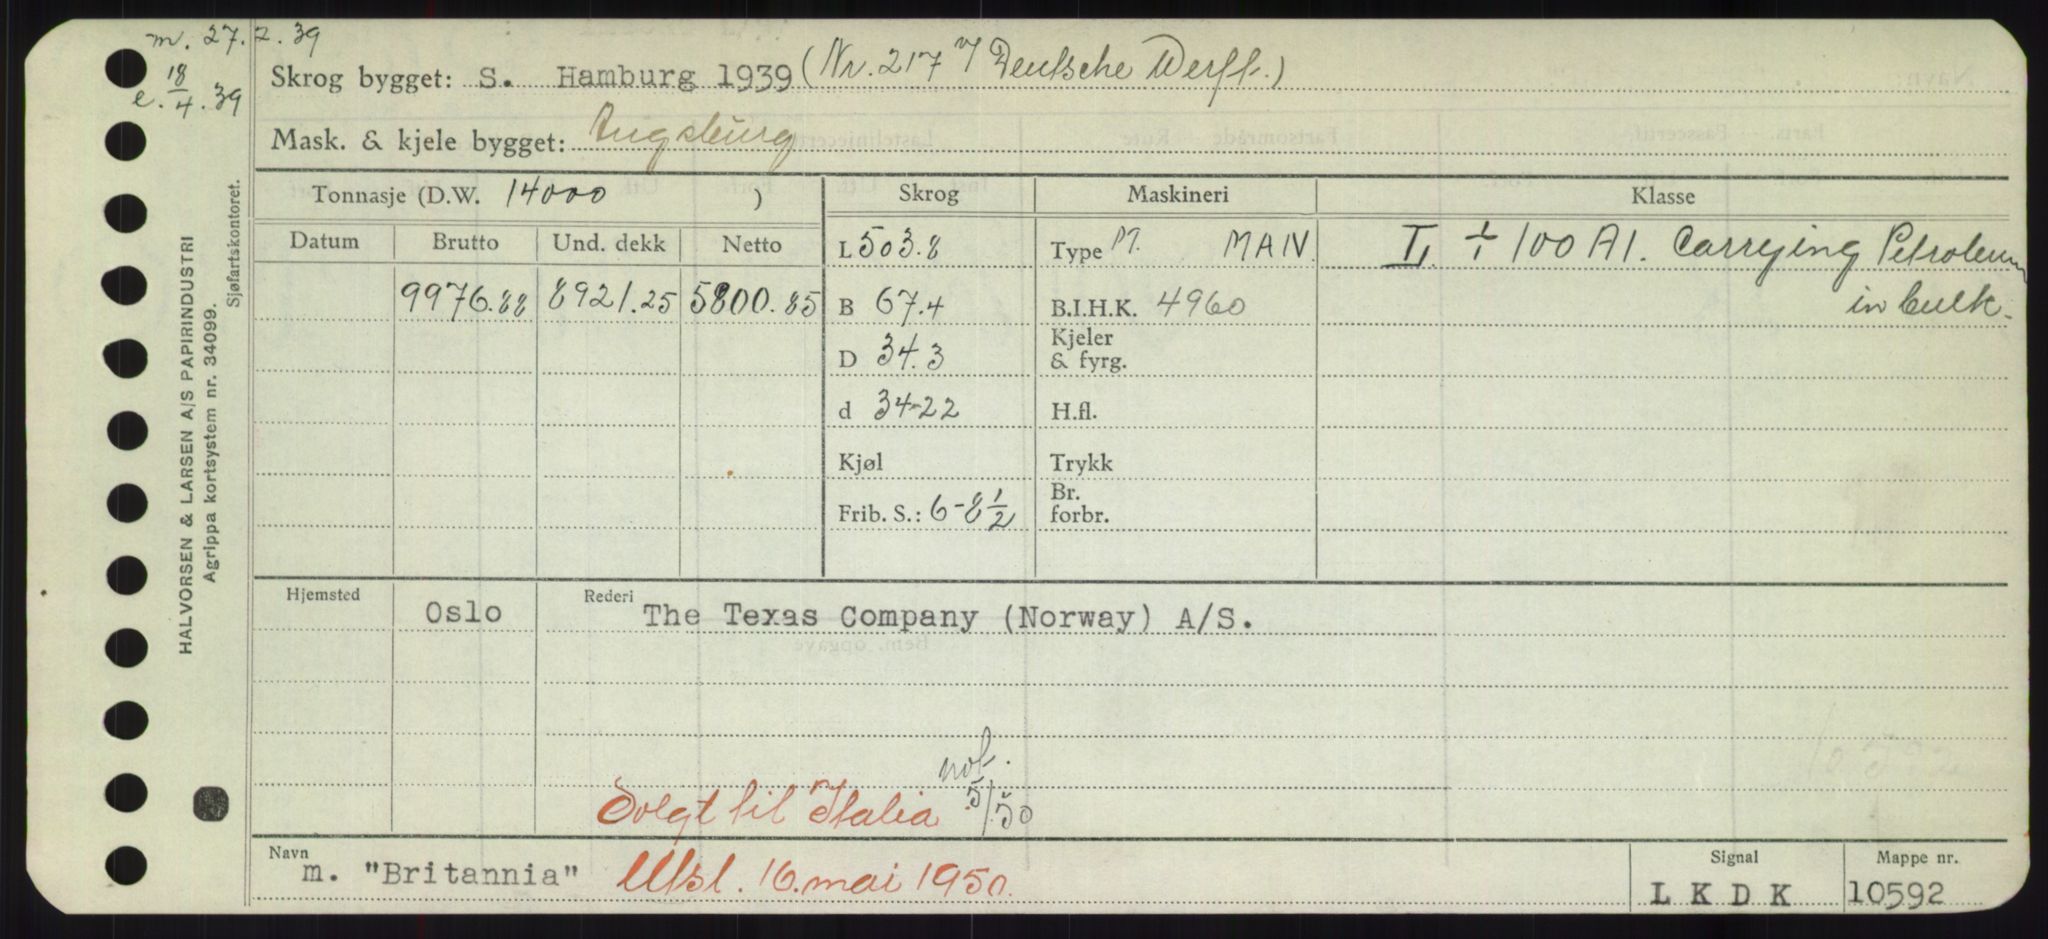 m. 27.2.39
e. 18/4.39
Skrog bygget: S. Hamburg 1939 (Nr. 217 v/ Deutsche Werft.)
Mask. & kjele bygget: Augsburg
Tonnasje (D.W. 14000 ) Skrog Maskineri Klasse
Datum Brutto Und. dekk Netto L 503.8 Type M. MAN. I. ÷ 100 A1. Carrying Petroleum
9976.88 8921.25 5800.85 B 67.4 B.I.H.K. 4960 in bulk.
D 34.3 Kjeler & fyrg.
d 34-22 H.fl.
Kjøl Trykk
Frib. S.: 6-8 1/2 Br. forbr.
Hjemsted Oslo Rederi The Texas Company (Norway) A/S.
Solgt til Italia not. 5/50
Navn m. "Britannia" Utsl. 16. mai 1950. Signal LKDK Mappe nr. 10592
HALVORSEN & LARSEN A/S PAPIRINDUSTRI
Agrippa kortsystem nr. 34099.
Sjøfartskontoret.